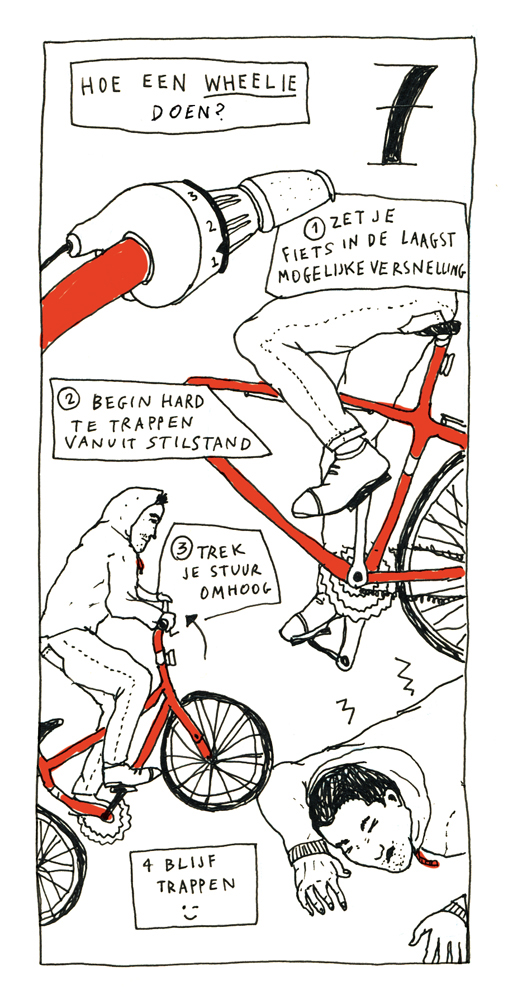 HOE EEN WHEELIE
DOEN?
7
3
2
1
1 ZET JE
FIETS IN DE LAAGST
MOGELIJKE VERSNELLING
2 BEGIN HARD
TE TRAPPEN
VANUIT STILSTAND
3 TREK
JE STUUR
OMHOOG
4 BLIJF
TRAPPEN